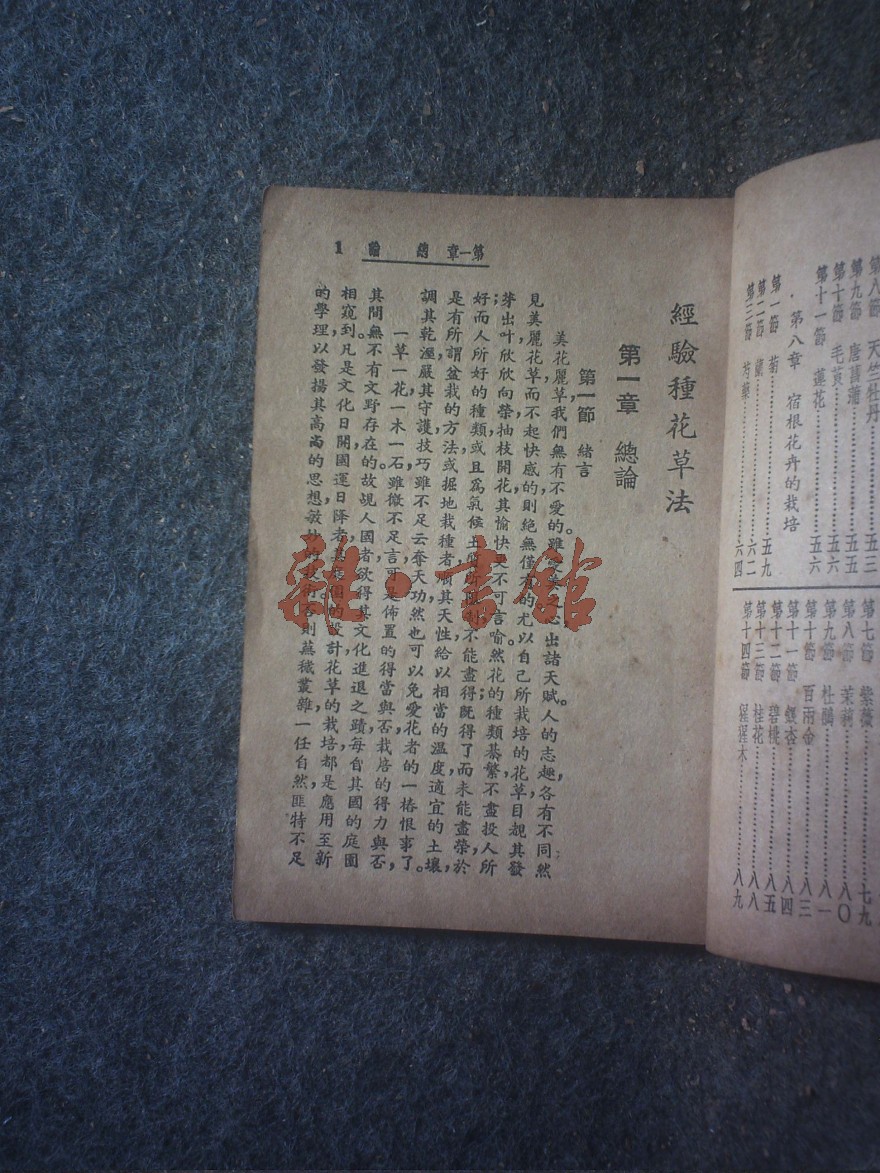 第八節 天竺牡丹 五三
第九節 唐菖蒲 五五
第十節 毛茛 五六
第十一節 蓮花 五六
第八章 宿根花卉的栽培
第一節 菊 五九
第二節 蘭 六二
第三節 芍藥 六四
第七節 紫薇 七九
第八節 茉莉 八〇
第九節 杜鵑 八一
第十節 百兩金 八三
第十一節 銀杏 八四
第十二節 碧桃 八五
第十三節 桂花 八八
第十四節 猩猩木 八九
第一章 總論 1
經驗種花草法
第一章 總論
第一節 緒言
美花麗草,我們無有不愛的。雖愛美之心出諸天賦。人的志趣,各有不同,然
見美麗花草而不起快感的,則絕無僅有的。尤以自己所栽培的花草,目覩其發
芽出叶,欣欣向榮,抽枝開花,其愉快更不可言喻。然花的種類綦繁,不盡投人所
好;而人所好的種類,或且爲氣候土質所限制,不能盡得;既得了而未能盡榮,於
是有所謂盆栽的方法,或掘地栽種者,順其天性,給以相當的溫度,適宜的土壤,
調其乾溼,嚴其守護,技巧雖不足云奪天功,然也可以免愛花者的一樁恨事了。
一草一花,一木一石,雖微不足言,可是佈置的得當與否,栽培的得力與否,
其間無不有文野存在的。故覘人國者,欲得其文化進退之蹟,每自其國的庭園
相窺到。凡是文化日開,國運日隆者,其庭園的設計,花草的栽培,都是應用至新
的學理,以發揚其高尚的思想,敏妙的技術。否則蕪穢叢雜,一任自然,匪特不足
雜·書館